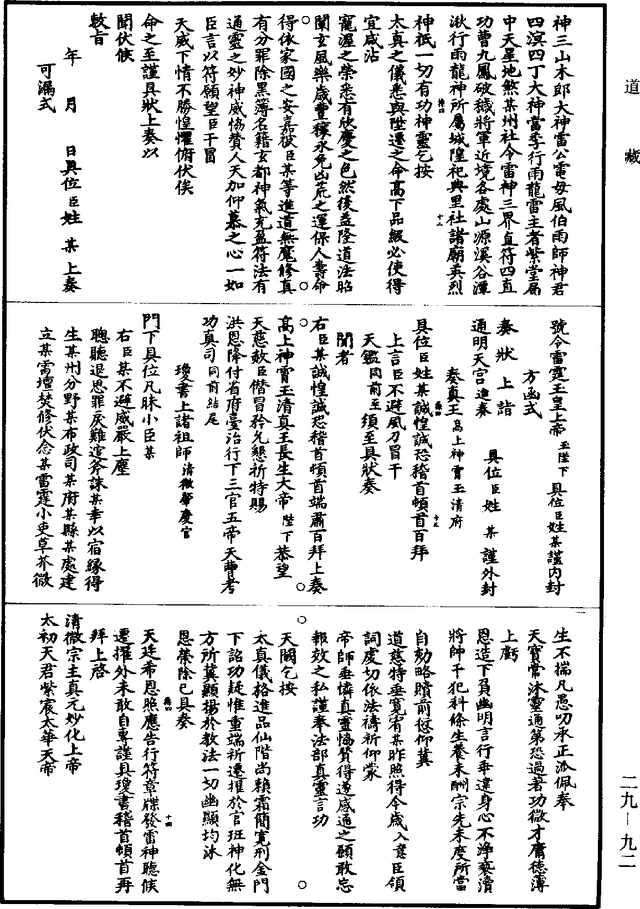 道藏
神三山木郎大神雷公電母風伯雨師神君
四溟四丁大神當季行雨龍雷主者紫堂局
中天星地煞某州社令雷神三界直符四直
功曹九鳳破穢將軍近境各處山源溪谷潭
湫行雨龍神所屬城隍祀典里社諸廟英烈
神祇一切有功神靈乞按
太真之儀悉與陞遷之命高下品級必使得
宜咸沾
寵渥之榮悉有欣慶之色然後益隆道法昭
闡玄風樂歲豐穰永免凶荒之運保人壽命
得保家國之安嘉猷臣某等進道無魔修真
有分罪除黑簿名籍玄都神氣充盈符法有
通靈之妙神威恊贊人天加仰慕之心一如
臣言以符願望臣干冒
天威下情不勝惶懼俯伏俟
命之至謹具狀上奏以
聞伏候
敕旨
年 月 日具位臣姓 某 上奏
可漏式
號令雷霆玉皇上帝 玉陛下 具位臣姓某謹內封
方函式
奏 狀 上 詣 具位臣姓 某 謹外封
通明天宮進奏
奏真王 高上神霄玉清府
具位臣姓某誠惶誠恐稽首頓首百拜
上言臣不避風刀冒干
天鑑 同前至 須至具狀奏
聞者
右臣某誠惶誠恐稽首頓首端肅百拜上奏
高上神霄玉清真王長生大帝 陛下 恭望
天慈歛臣僭冒矜允懇祈特賜
洪恩降付省府臺治行下三官五帝天曹考
功真司 同前結尾
瓊書上諸祖師 清微肇慶宮
門下具位凡昧小臣某
右臣某不避威嚴上塵
聰聽退思罪戾難逭斧誅某幸以宿緣得
生某州分野某布政司某府某縣某處建
立某霱壇焚修伏念某雷霆小吏草芥微
生不揣凡愚叨承正派佩奉
天寶常沐靈通第恐過著功微才庸德薄
上虧
恩造下負幽明言行乖違身心不淨褻瀆
將帥干犯科條生養未酬宗先未度所當
自劾略贖前愆仰冀
道慈特垂寬宥某昨照得今歲入意臣領
詞虔切依法禱祈仰蒙
帝師垂憐真靈恊贊得遂感通之願敢忘
報效之私謹奉法部真靈言功
天闕乞按
太真儀格進品仙階尚賴霜簡寬刑金門
下詔功疑惟重端祈遷擢於官班神化無
方所冀顯揚於教法一切幽顯均沐
恩榮除已具奏
天廷希恩照應告行符章牒發雷神聽候
遷擢外未敢自專謹具瓊書稽首頓首再
拜上啓
清微宗主真元妙化上帝
太初天君紫宸太華天帝
二九-九二